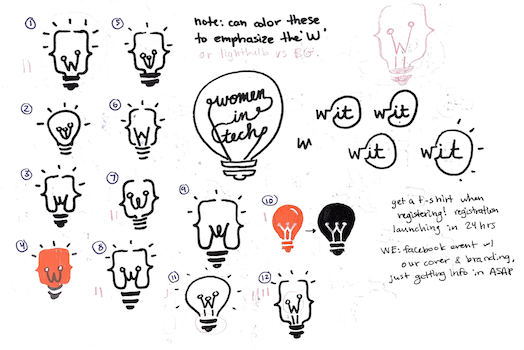 1
5
note: can color these
to emphasize the 'W'
or lightbulb vs EG.
2
6
women
in
tech
wit
wit
w
wit
wit
3
7
9
10
get a T-shirt when
registering! registration
launching in 24 hrs
WE: facebook event w/
our cover & branding,
just getting info in ASAP
4
8
11
12
W
W
W
W
W
W
W
W
W
W
W
W
W
W